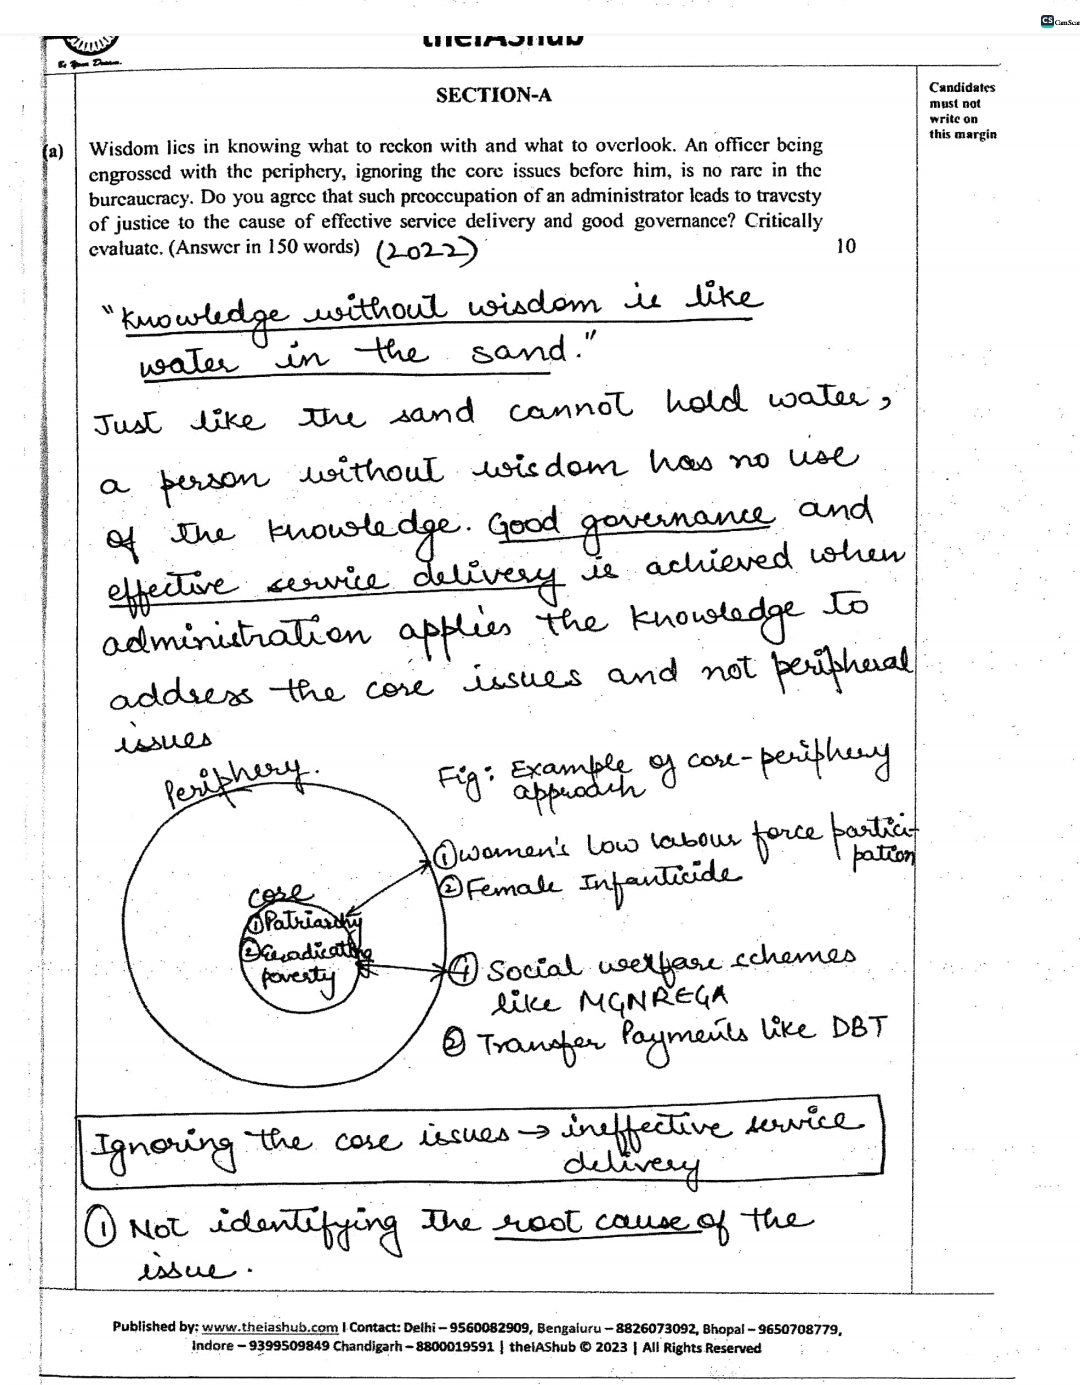 CS CamScan
theIAShub
Be Your Dream.
SECTION-A
Candidates
must not
write on
this margin
(a) Wisdom lies in knowing what to reckon with and what to overlook. An officer being
engrossed with the periphery, ignoring the core issues before him, is no rare in the
bureaucracy. Do you agree that such preoccupation of an administrator leads to travesty
of justice to the cause of effective service delivery and good governance? Critically
evaluate. (Answer in 150 words) (2022) 10
"Knowledge without wisdom is like
water in the sand."
Just like the sand cannot hold water,
a person without wisdom has no use
of the knowledge. Good governance and
effective service delivery is achieved when
administration applies the knowledge to
address the core issues and not peripheral
issues
Periphery.
Fig: Example of core-periphery
approach
① women's low labour force partici-
pation
② Female Infanticide
core
① Patriarchy
② Eradicating
poverty
④ Social welfare schemes
like MGNREGA
② Transfer Payments like DBT
Ignoring the core issues → ineffective service
delivery
① Not identifying the root cause of the
issue.
Published by: www.theiashub.com I Contact: Delhi – 9560082909, Bengaluru – 8826073092, Bhopal – 9650708779,
Indore – 9399509849 Chandigarh – 8800019591 | theIAShub © 2023 | All Rights Reserved